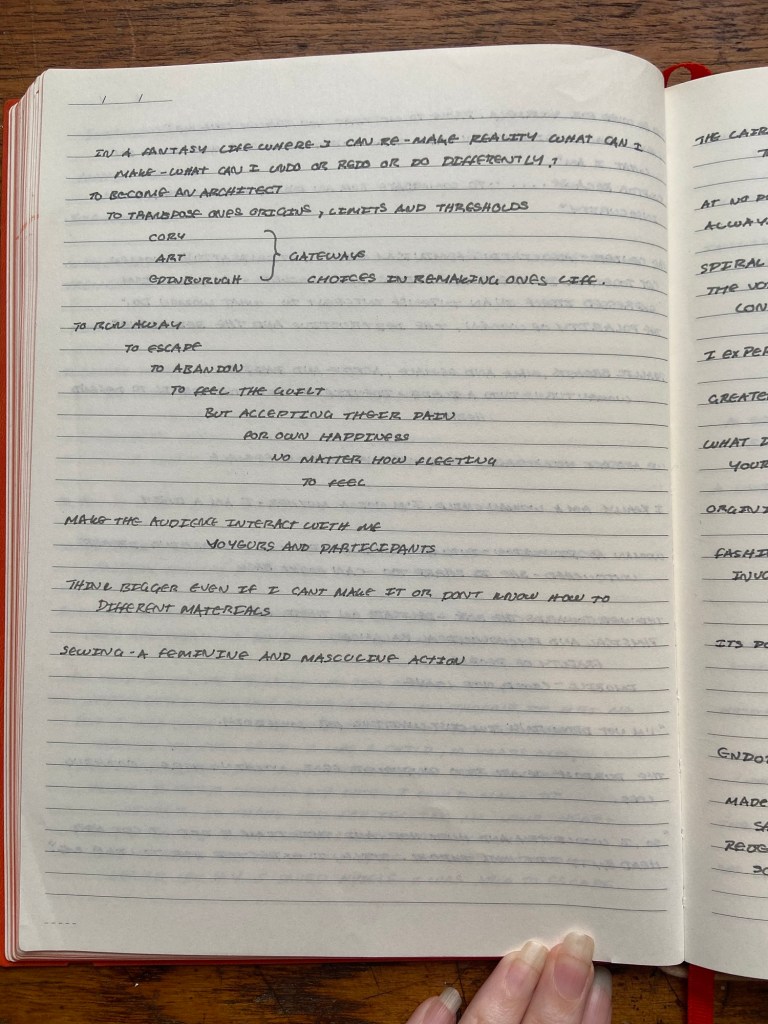 IN A FANTASY LIFE WHERE I CAN RE-MAKE REALITY WHAT CAN I
MAKE - WHAT CAN I UNDO OR REDO OR DO DIFFERENTLY?
TO BECOME AN ARCHITECT
TO TRANSPOSE ONES ORIGINS, LIMITS AND THRESHOLDS
CORY
ART } GATEWAYS
EDINBURGH CHOICES IN REMAKING ONES LIFE.
TO RUN AWAY
TO ESCAPE
TO ABANDON
TO FEEL THE GUILT
BUT ACCEPTING THEIR PAIN
FOR OWN HAPPINESS
NO MATTER HOW FLEETING
TO FEEL
MAKE THE AUDIENCE INTERACT WITH ME
VOYEURS AND PARTICIPANTS
THINK BIGGER EVEN IF I CANT MAKE IT OR DONT KNOW HOW TO
DIFFERENT MATERIALS
SEWING - A FEMININE AND MASCULINE ACTION
THE
AT NO
SPIRAL
THE
CON
I EXPER
GREATE
WHAT I
YOUR
ORGINI
FASHI
INVO
ITS PO
ENDO
MADE